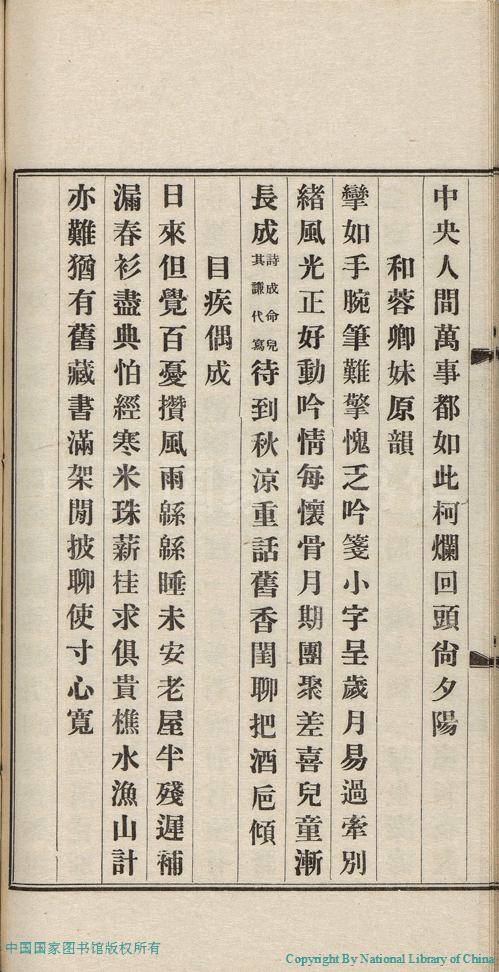 中央人間萬事都如此柯爛回頭尙夕陽
和蓉卿妹原韻
攣如手腕筆難擎愧乏吟箋小字呈歲月易過牽別
緒風光正好動吟情每懷骨月期團聚差喜兒童漸
長成詩成命兒其謙代寫待到秋涼重話舊香閨聊把酒卮傾
目疾偶成
日來但覺百憂攢風雨緜緜睡未安老屋半殘遲補
漏春衫盡典怕經寒米珠薪桂求俱貴樵水漁山計
亦難猶有舊藏書滿架閒披聊使寸心寬
中国国家图书馆版权所有
Copyright By National Library of China